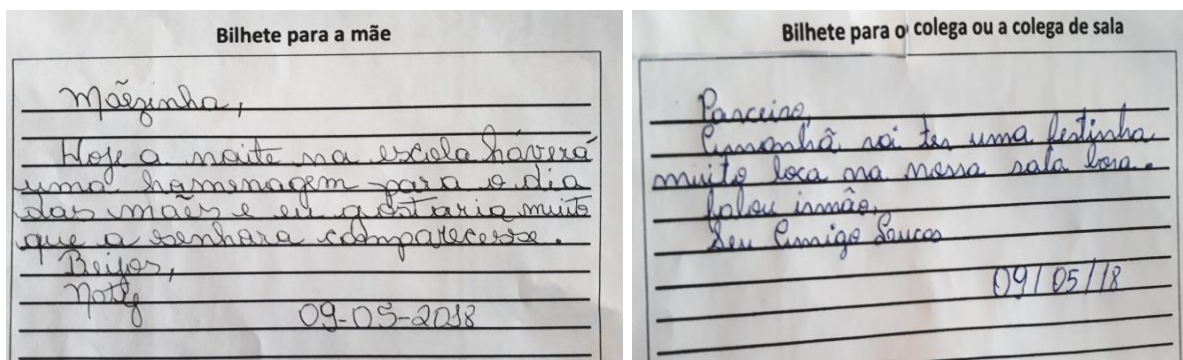 Bilhete para a mãe
Mãezinha,
Hoje a noite na escola haverá
uma homenagem para o dia
das mães e eu gostaria muito
que a senhora comparecesse.
Beijos,
Naty
09-05-2018
Bilhete para o colega ou a colega de sala
Parceiro,
Amanhã vai ter uma festinha
muito loca na nossa sala bora.
falou irmão,
Seu Amigo Lucas
09/05/18